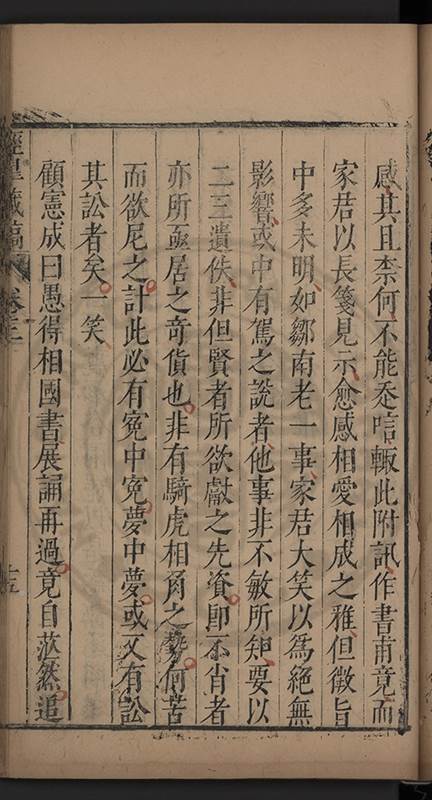 感其且柰何不能忝唁輙此附訊作書甫竟而
家君以長箋見示愈感相愛相成之雅但徵旨
中多未明如鄒南老一事家君大笑以爲絕無
影響或中有駕之說者他事非不敏所知要以
二三遺佚非但賢者所欲獻之先資即不肖者
亦所亟居之奇貨也非有騎虎相角之勢何苦
而欲尼之計此必有寃中寃夢中夢或又有訟
其訟者矣一笑
顧憲成曰愚得相國書展誦再過竟自茫然追
涇臯藏稿 卷三 十五